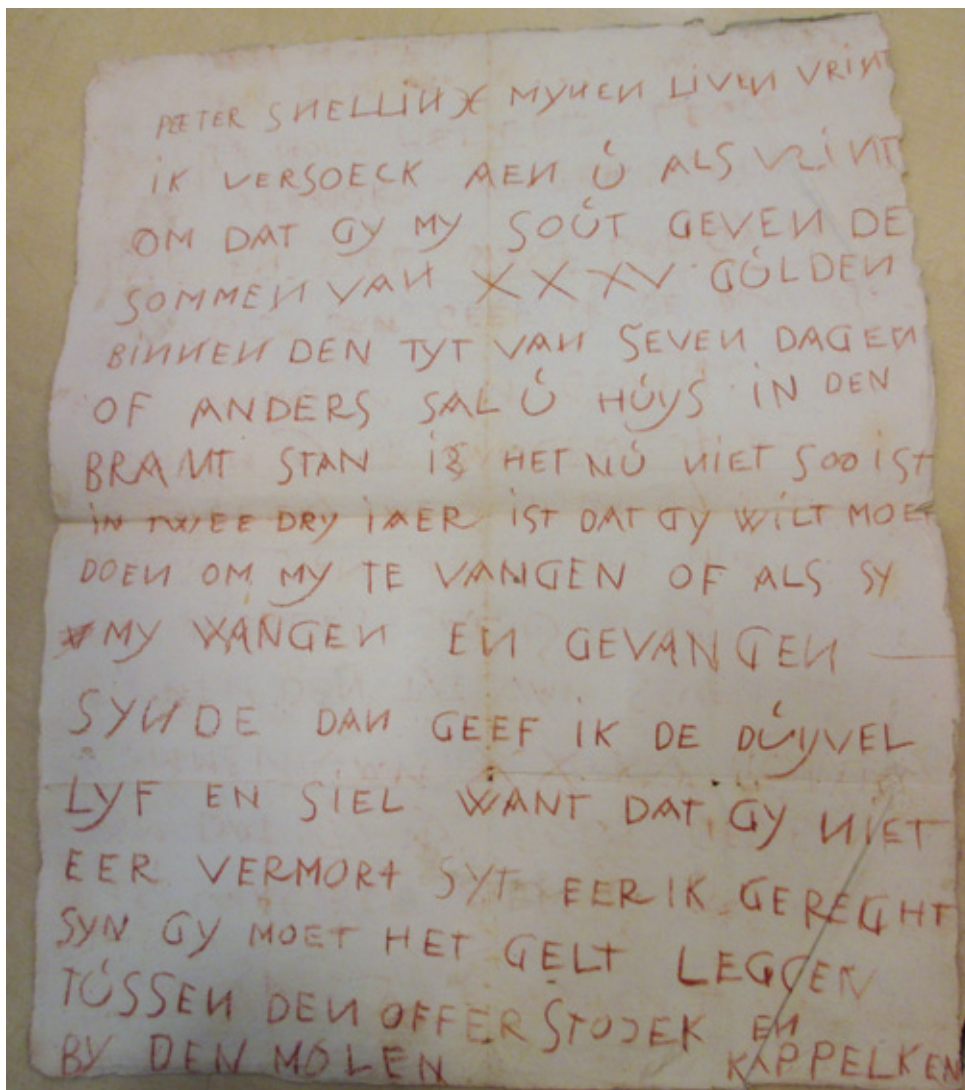 PEETER SNELLINX MYNEN LIVEN VRINT
IK VERSOECK AEN Ú ALS VRINT
OM DAT GY MY SOÚT GEVEN DE
SOMMEN VAN XXXV GÚLDEN
BINNEN DEN TYT VAN SEVEN DAGEN
OF ANDERS SAL Ú HÚYS IN DEN
BRANT STAN IS HET NÚ NIET SOO IST
IN TWEE DRY IAER IST DAT GY WILT MOET
DOEN OM MY TE VANGEN OF ALS SY
MY VANGEN EN GEVANGEN
SYNDE DAN GEEF IK DE DÚYVEL
LYF EN SIEL WANT DAT GY NIET
EER VERMORT SYT EER IK GEREGHT
SYN GY MOET HET GELT LEGGEN
TÚSSEN DEN OFFER STOJEK EN
BY DEN MOLEN KAPPELKEN